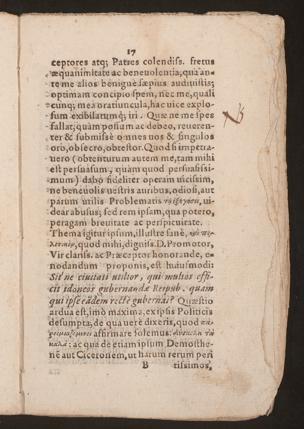 17
ceptores atq; Patres colendiss. fretus
æquanimitate ac beneuolentia, qua an-
te me alios benigne sæpius auditistis;
optimam concipio spem, nec me, quali
cunq; mea oratiuncula, hac vice explo-
sum exibilatumq; iri. Quæ ne me spes
fallat; quam possum ac debeo, reueren-
ter & submisse omnes uos & singulos
oro, obsecro, obtestor. Quod si impetra-
uero (obtenturum autem me, tam mihi
est persuasum, quam quod persuasissi-
mum) dabo fideliter operam uicissim,
ne beneuolis uestris auribus, odiosi, aut
parum utilis Problematis ui-
dear abusus; sed rem ipsam, qua potero,
peragam breuitate ac perspicuitate.
Thema igitur ipsum, illustre sane,
quod mihi, digniss. D. Promotor,
Vir clariss. ac Præceptor honorande, e-
nodandum proponis, est huiusmodi:
Sit ne ciuitati utilior, qui multos effi-
cit idoneos gubernandæ Reipub. quam
qui ipse eadem recte gubernat? Quæstio
ardua est, imò maxima, ex ipsis Politicis
desumpta; de qua uere dixeris, quod
affirmare solemus:
: ac qua de etiam ipsum Demosthe-
nē aut Ciceronem, ut harum rerum peri
B tissimos,